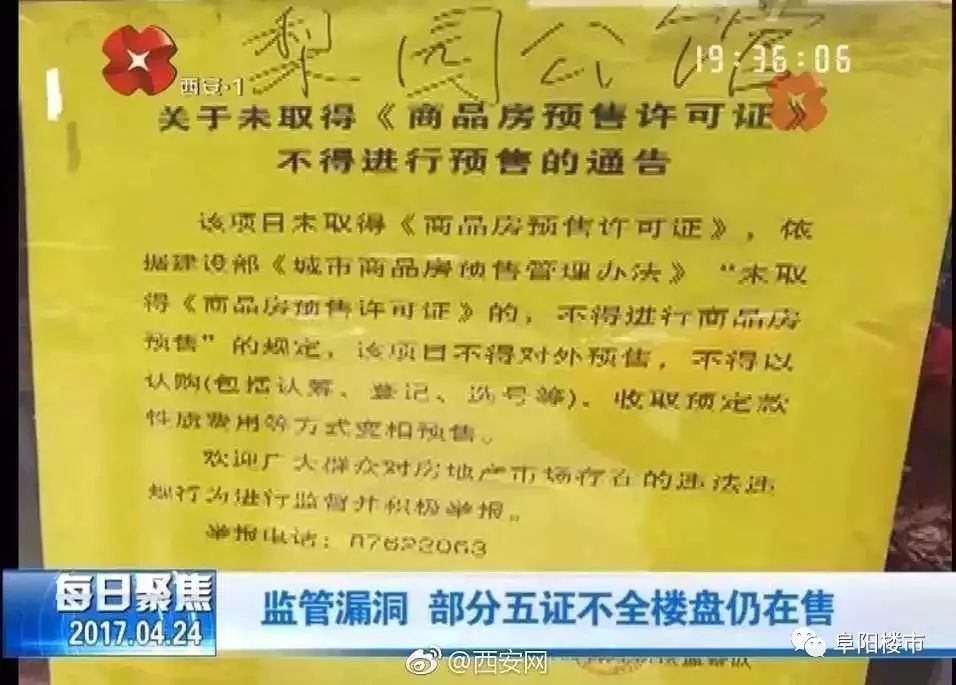 梨园公馆
19:36:06
西安·1
关于未取得《商品房预售许可证》
不得进行预售的通告
该项目未取得《商品房预售许可证》，依
据建设部《城市商品房预售管理办法》“未取
得《商品房预售许可证》的，不得进行商品房
预售”的规定，该项目不得对外预售，不得以
认购(包括认筹、登记、选号等)、收取预定款
性质费用等方式变相预售。
欢迎广大群众对房地产市场存在的违法违
规行为进行监督并积极举报。
举报电话：87622063
每日聚焦
2017.04.24
监管漏洞 部分五证不全楼盘仍在售
@西安网
阜阳楼市